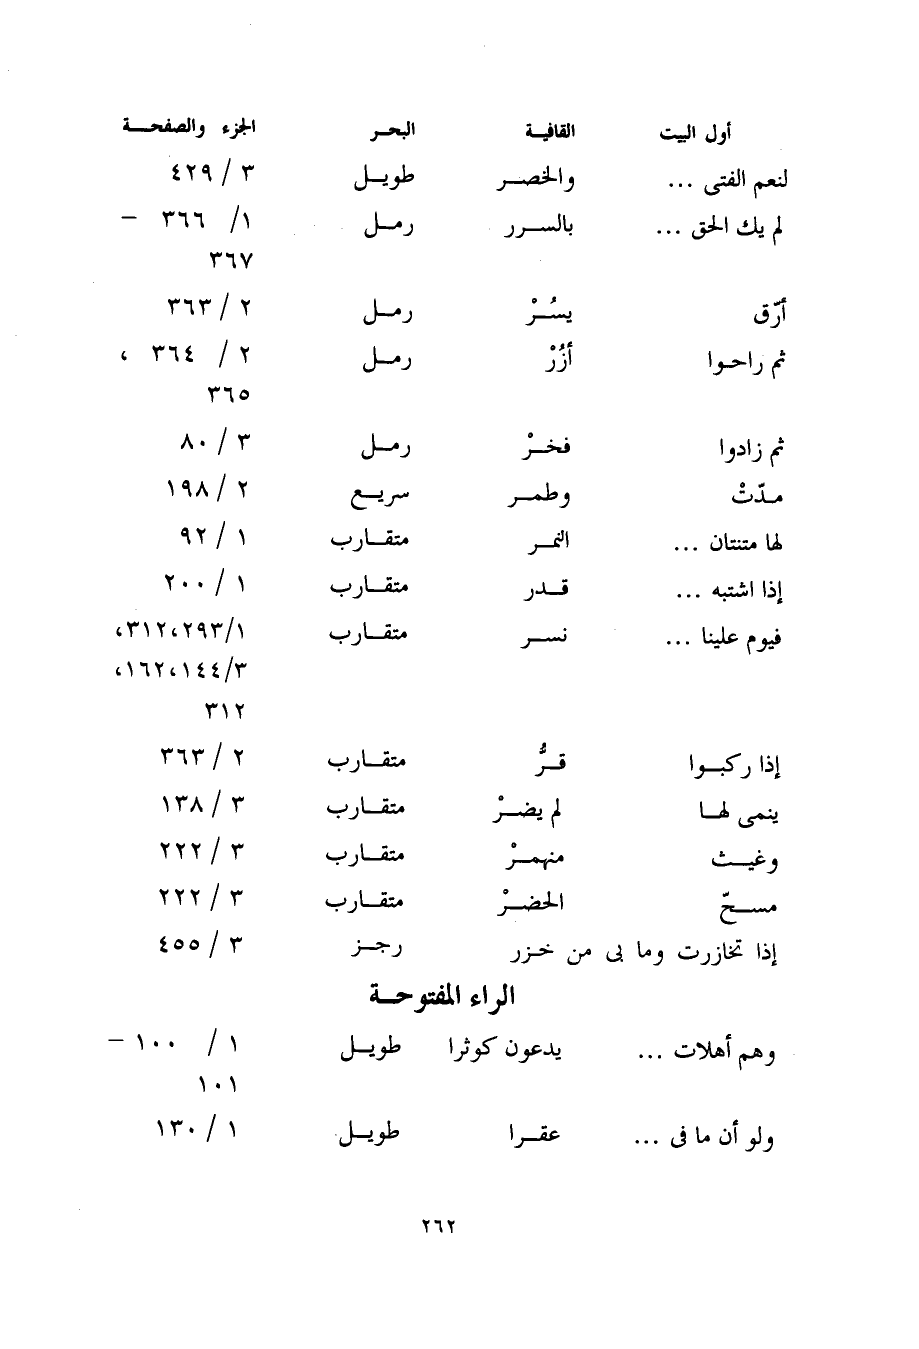 أول البيت القافية البحر الجزء والصفحة
لنعم الفتى ... والخصر طويل ٣ / ٤٢٩
لم يك الحق ... بالسرر رمل ١/ ٣٦٦ –
٣٦٧
أرّق يسُرْ رمل ٢ / ٣٦٣
ثم راحوا أزُرْ رمل ٢ / ٣٦٤ ،
٣٦٥
ثم زادوا فخرْ رمل ٣ / ٨٠
مدّتْ وطمر سريع ٢ / ١٩٨
لها متنتان ... النمر متقارب ١ / ٩٢
إذا اشتبه ... قدر متقارب ١ / ٢٠٠
فيوم علينا ... نسر متقارب ١/٢٩٣،٣١٢،
٣/١٤٤،١٦٢،
٣١٢
إذا ركبوا قرُّ متقارب ٢ / ٣٦٣
ينمى لها لم يضرْ متقارب ٣ / ١٣٨
وغيث منهمرْ متقارب ٣ / ٢٢٢
مسحّ الحضرْ متقارب ٣ / ٢٢٢
إذا تخازرت وما بى من خزر رجز ٣ / ٤٥٥
الراء المفتوحة
وهم أهلات ... يدعون كوثرا طويل ١ / ١٠٠ –
١٠١
ولو أن ما فى ... عقرا طويل ١ / ١٣٠
٢٦٢